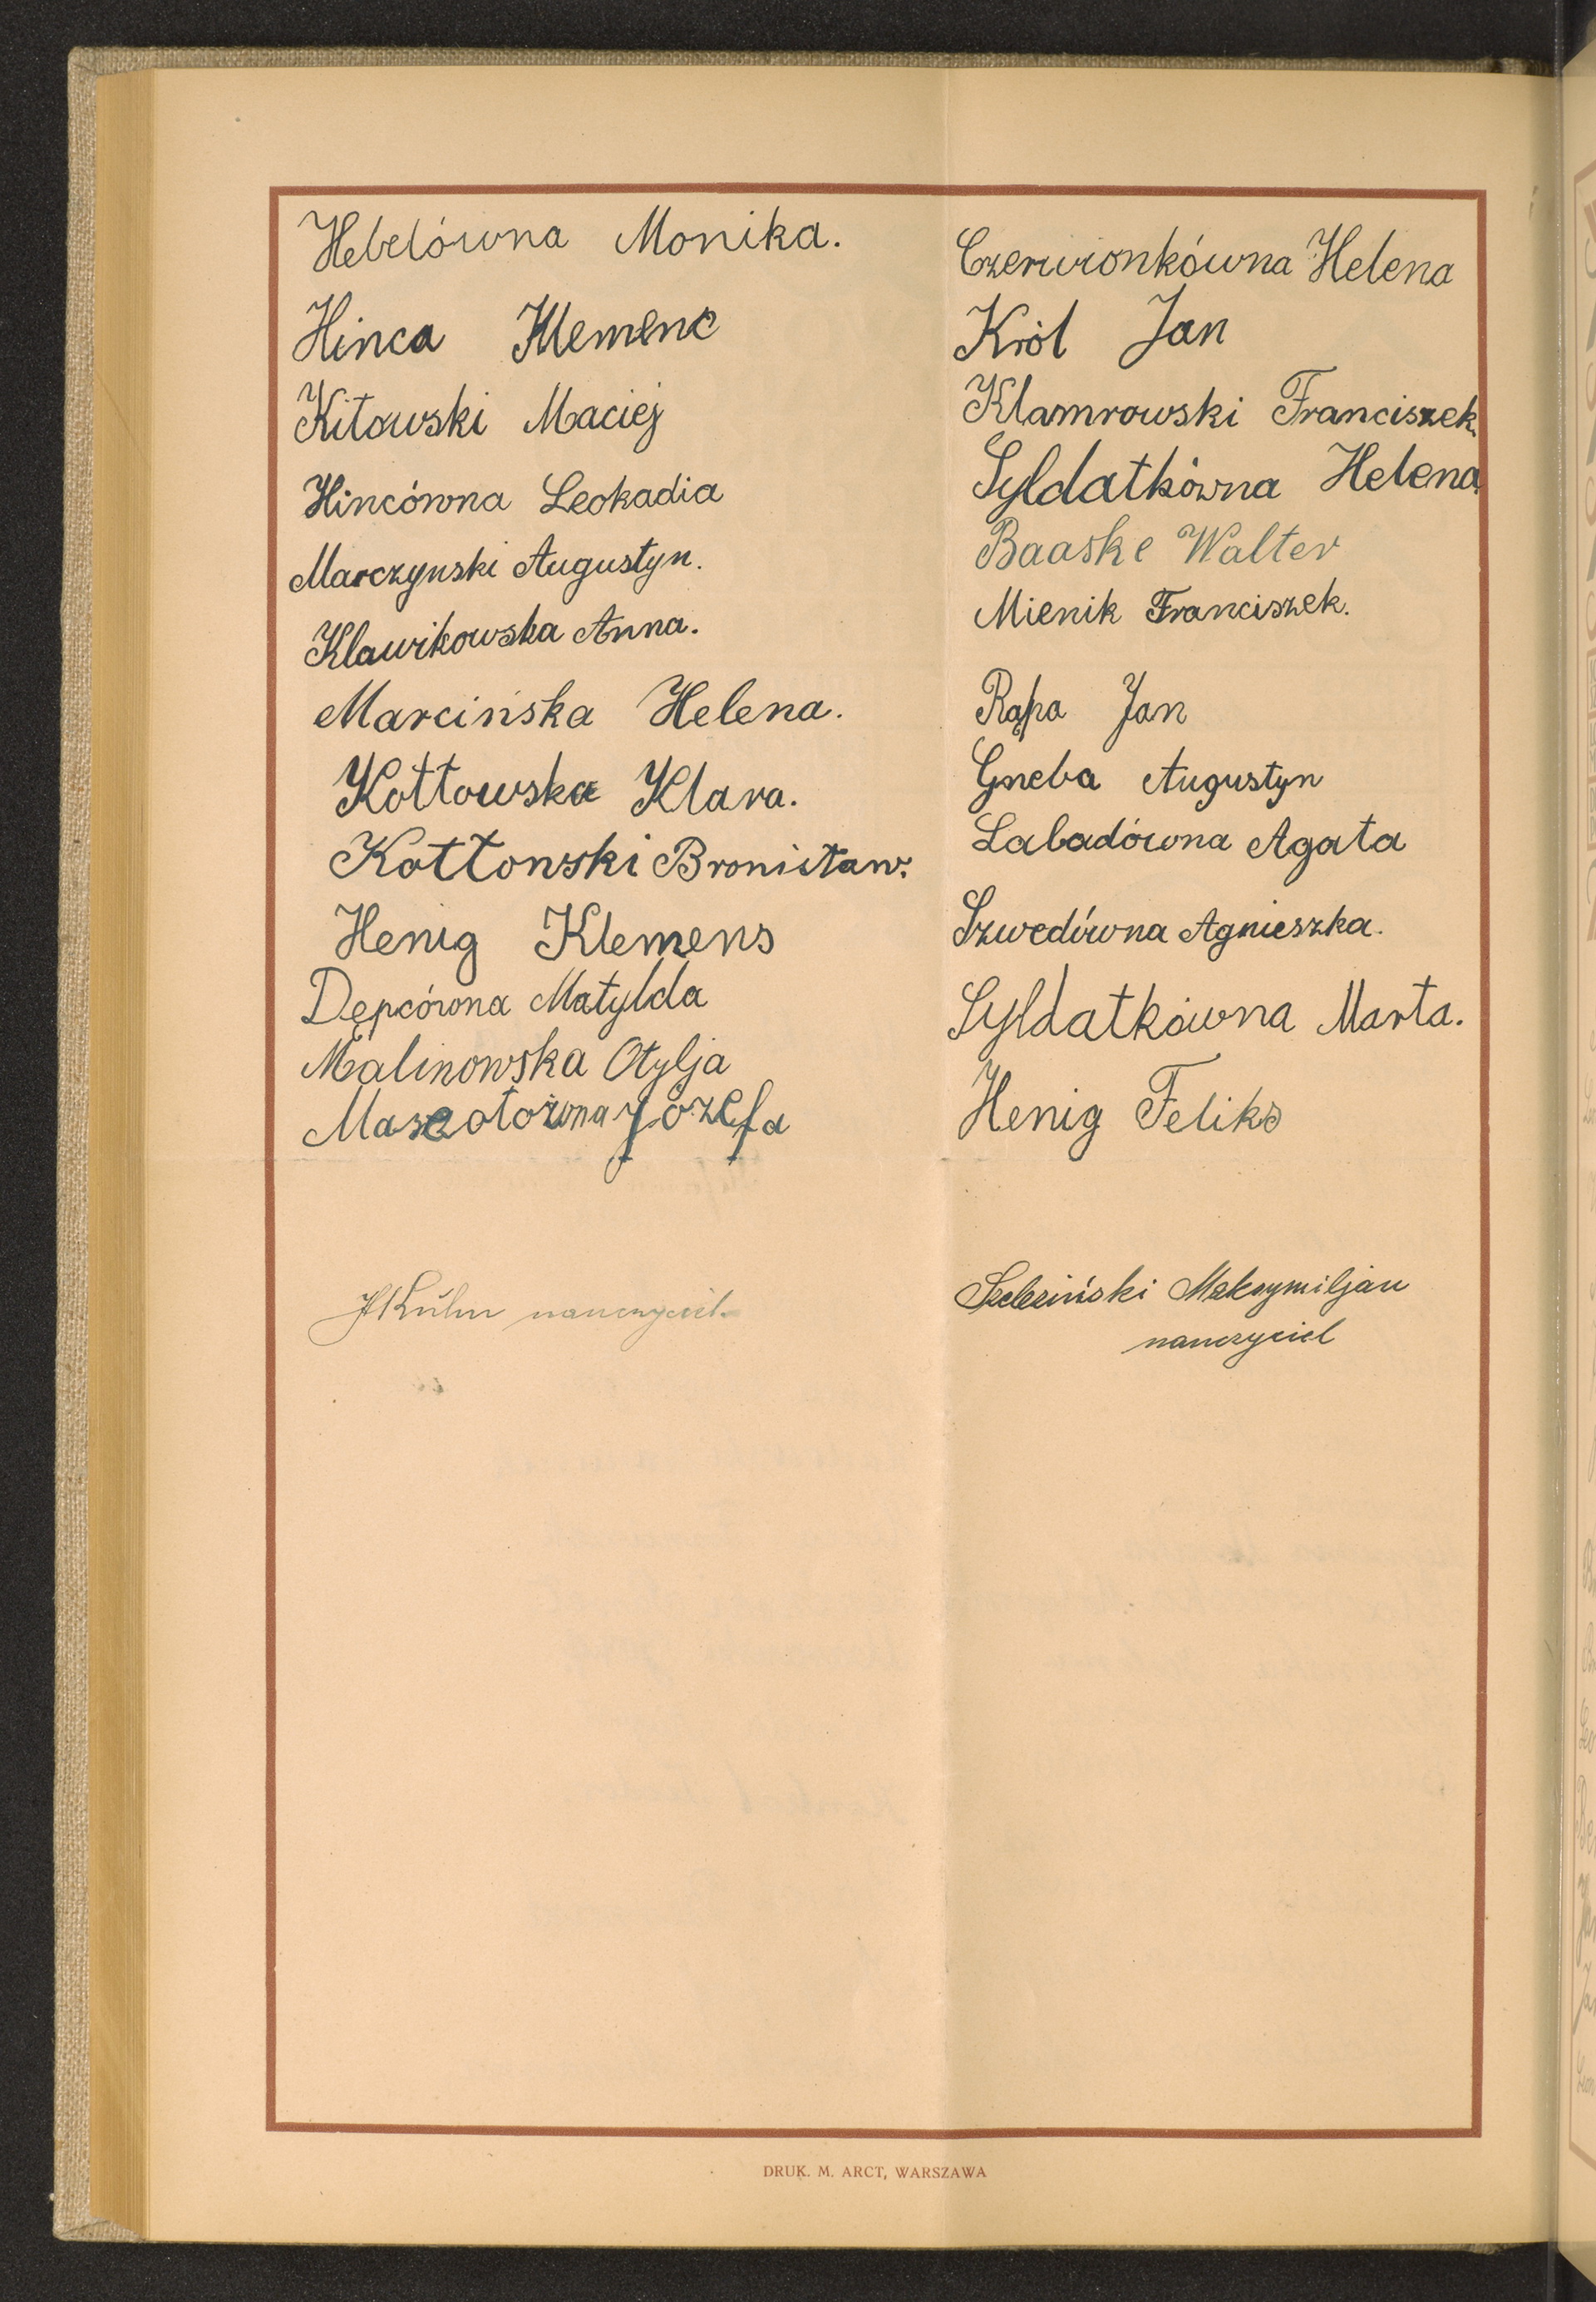 Hebelówna Monika.
Hinca Klemenc
Kitowski Maciej
Hincówna Leokadia
Marczynski Augustyn.
Klawikowska Anna.
Marcińska Helena.
Kottowska Klara.
Kottowski Bronisław.
Henig Klemens
Dępcówna Matylda
Malinowska Otylja
Józefa
nauczyciel
Czerwionkówna Helena
Król Jan
Klamrowski Franciszek
Syldatkówna Helena
Baaske Walter
Mienik Franciszek.
Rąpa Jan
Gneba Augustyn
Labadówna Agata
Szwedówna Agnieszka.
Syldatkówna Marta.
Henig Feliks
Maksymiljan
nauczyciel
DRUK. M. ARCT, WARSZAWA